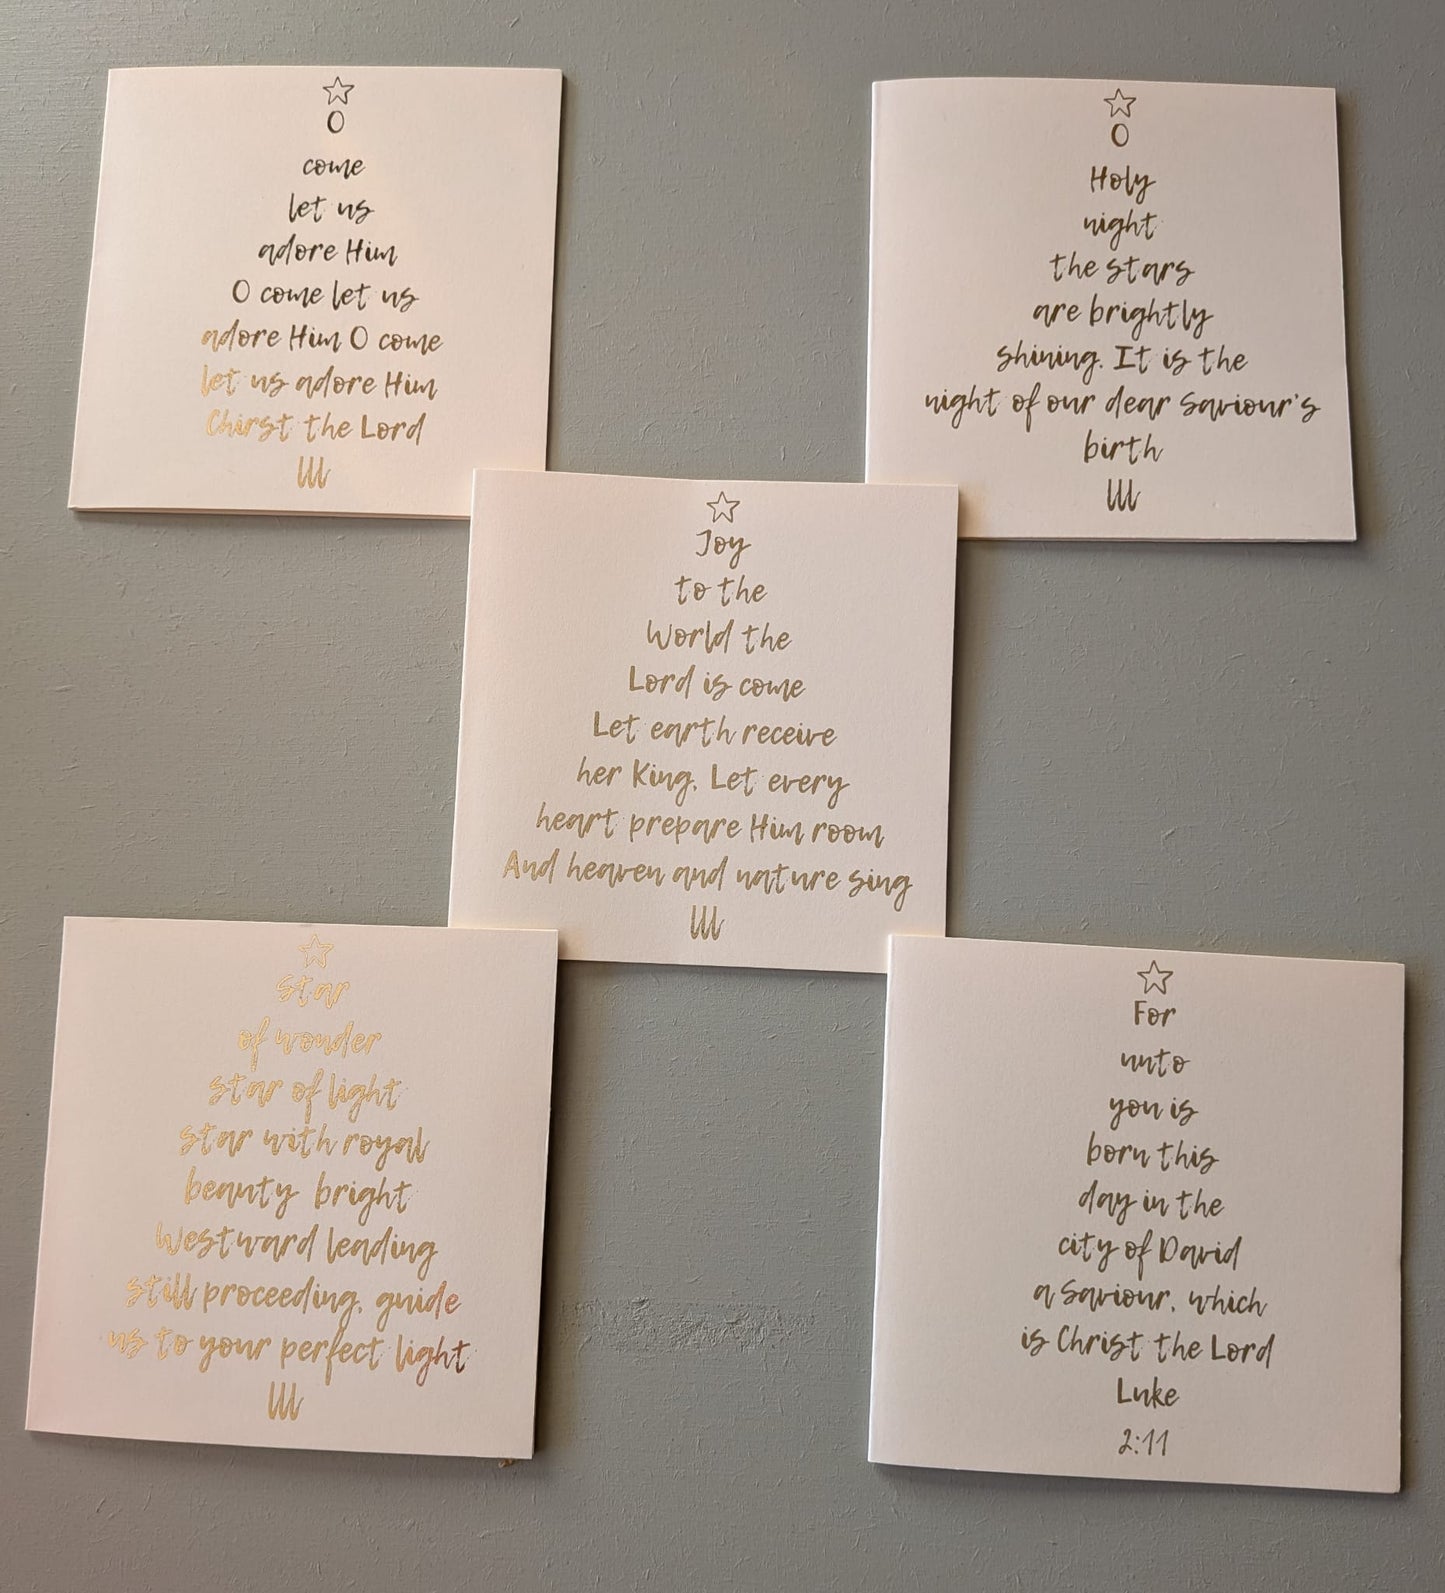 O
come
let us
adore Him
O come let us
adore Him O come
let us adore Him
Chirst the Lord
O
Holy
night
the stars
are brightly
shining. It is the
night of our dear Saviour's
birth
Joy
to the
World the
Lord is come
Let earth receive
her King. Let every
heart prepare Him room
And heaven and nature sing
star
of wonder
star of light
star with royal
beauty bright
Westward leading
still proceeding, guide
us to your perfect light
For
unto
you is
born this
day in the
city of David
a Saviour, which
is Christ the Lord
Luke
2:11